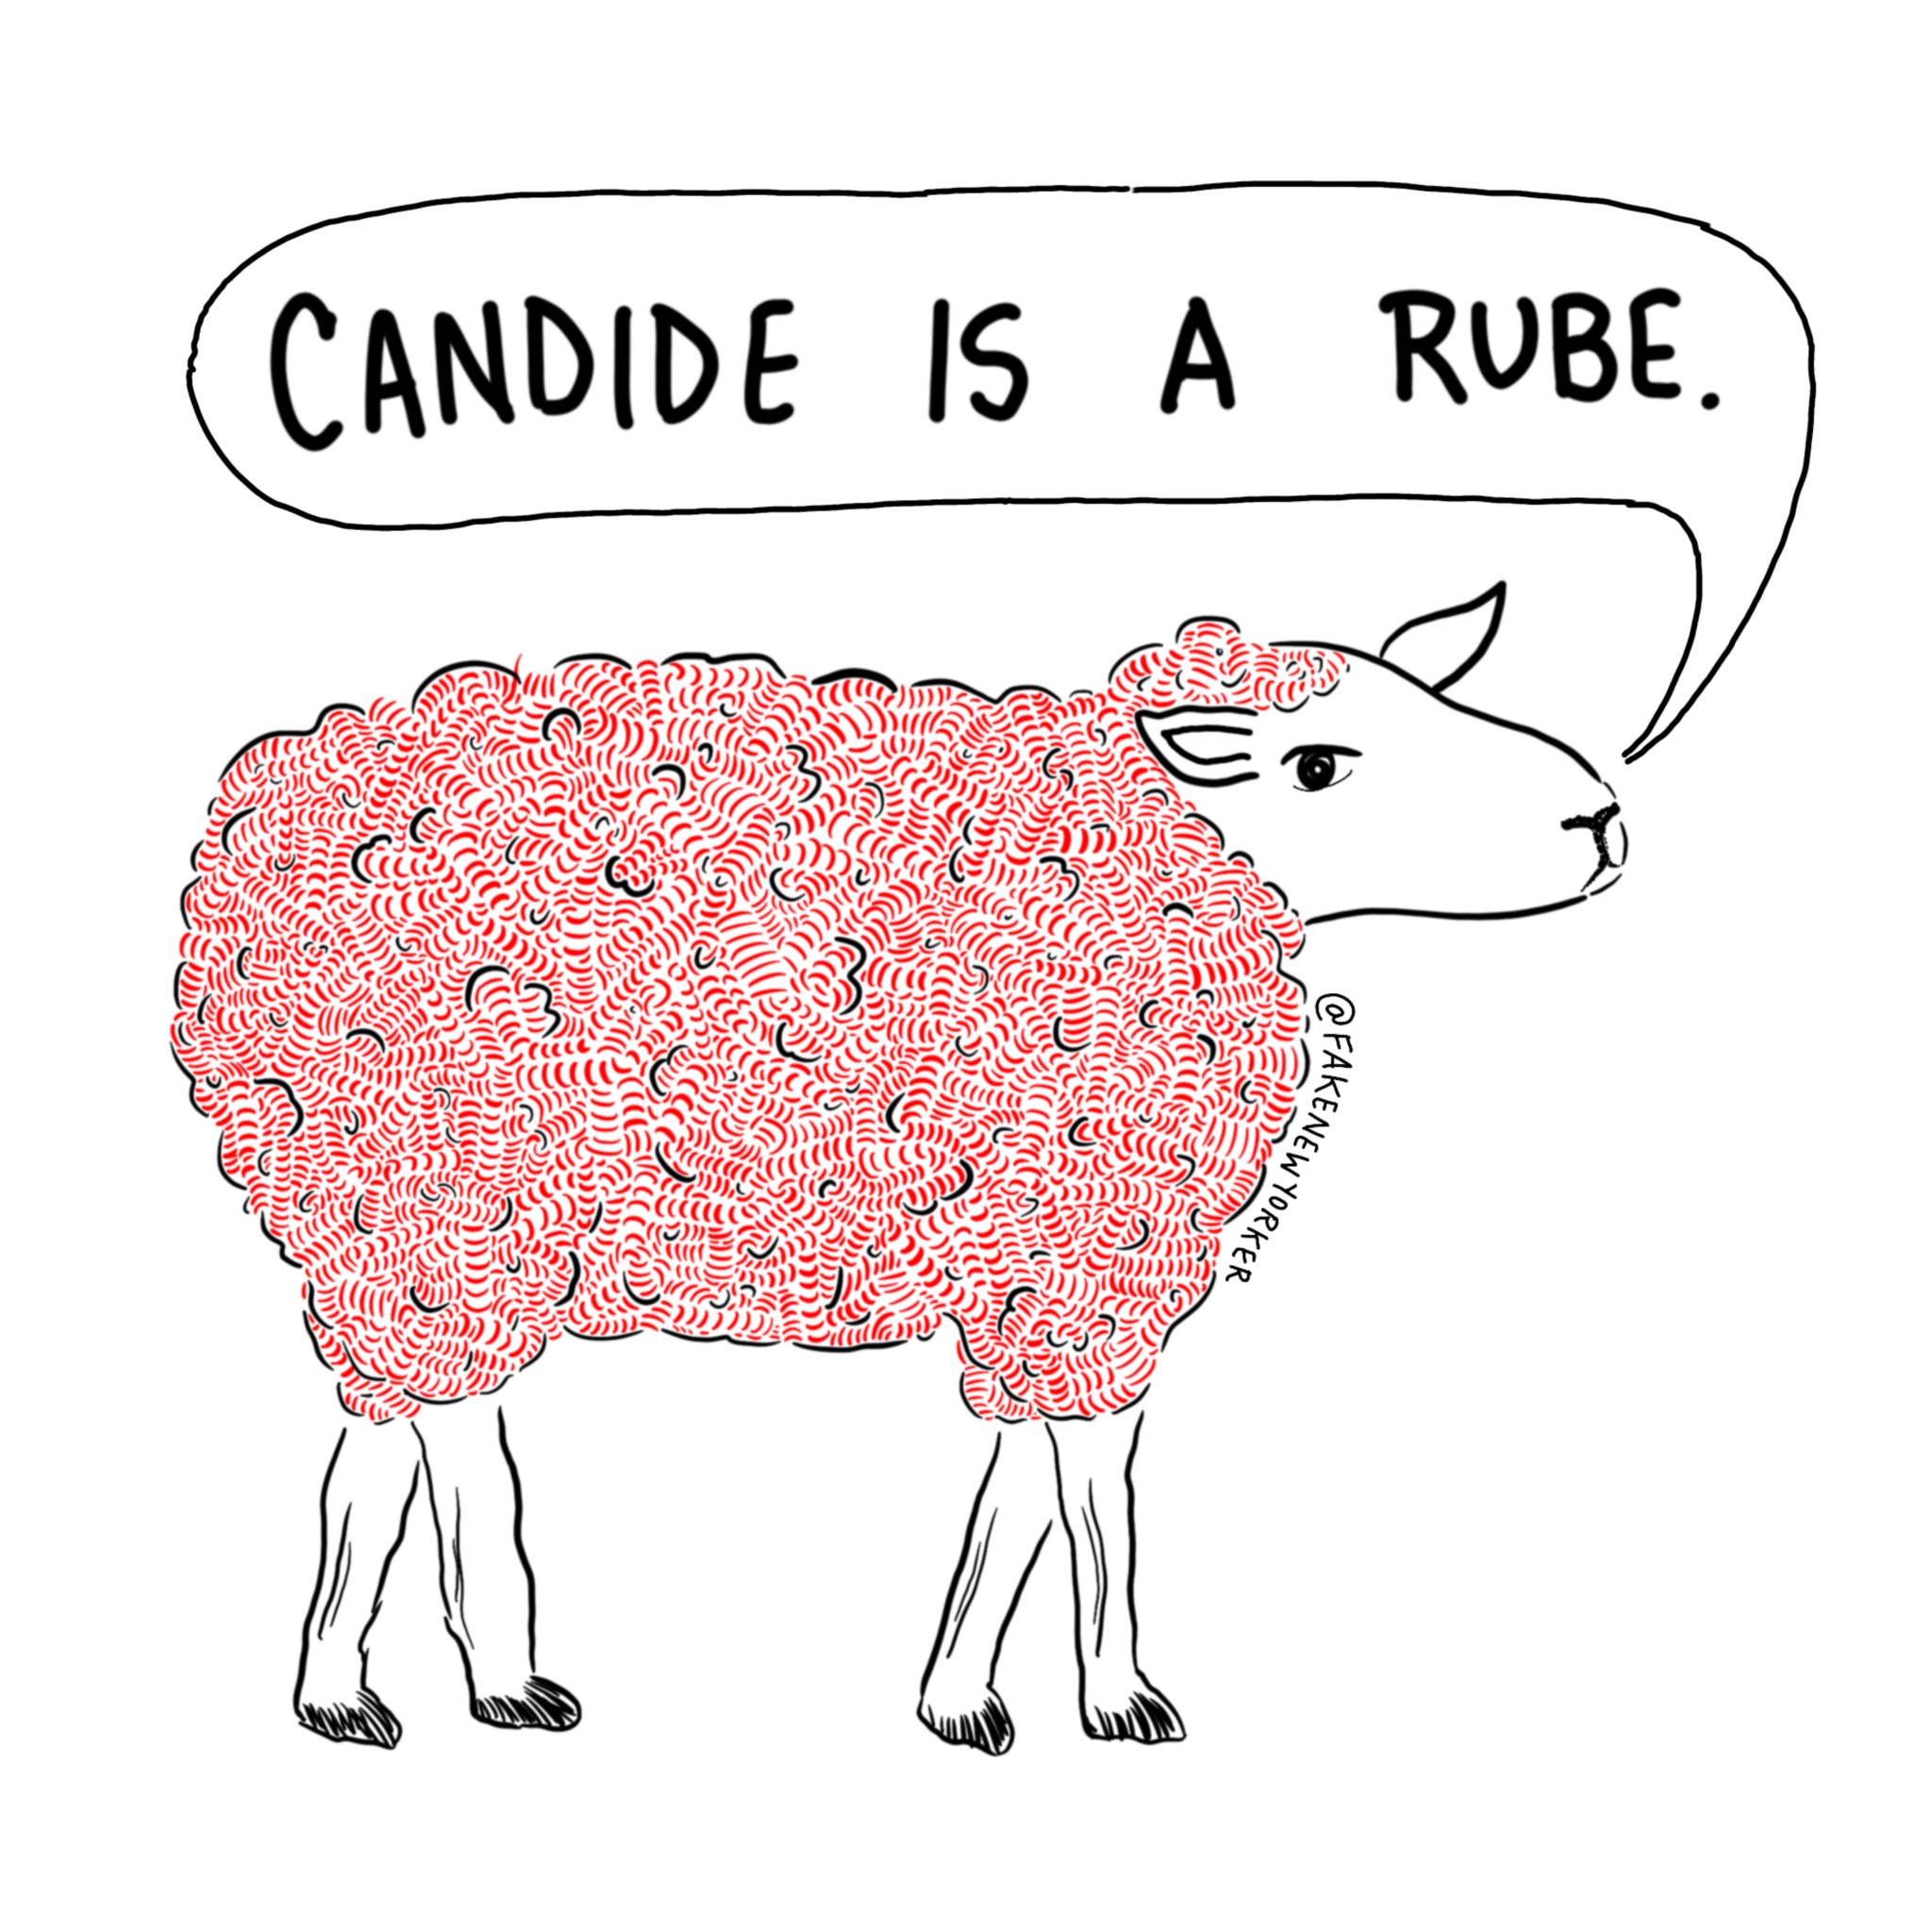 CANDIDE IS A RUBE.
@FAKENEWYORKER